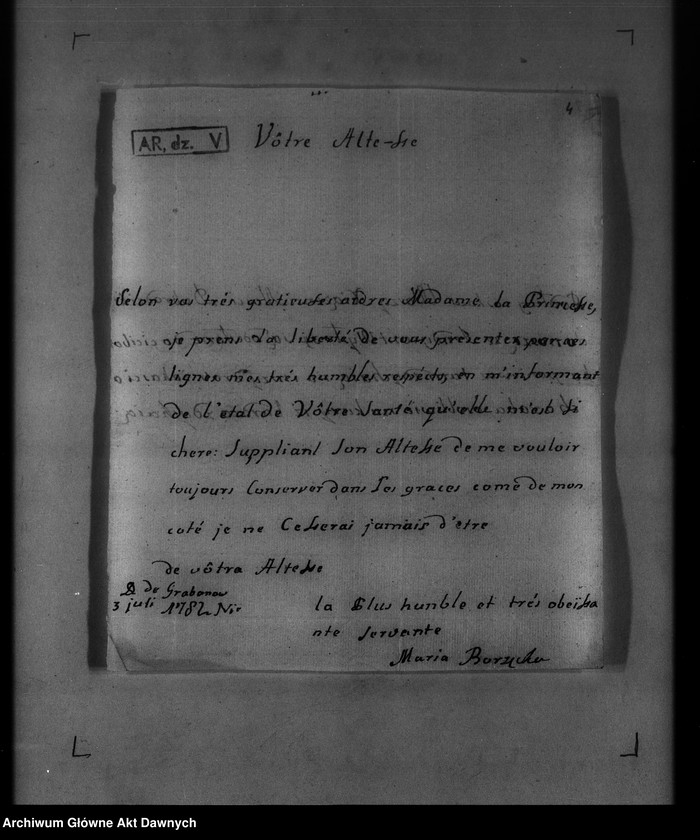 4
AR, dz. V
Vôtre Altesse
Selon vos trés gratieuses ordres Madame la Princesse,
je prens la liberté De vous presenter par ces
lignes mes trés humbles respécts, en m'informant
de l'etat de Vôtre Santé qu'elle m'est Si
chere: Suppliant Son Altesse de me vouloir
toujours Conserver dans Ses graces come de mon
coté je ne Cesserai jamais d'etre
de vôtra Altesse
de Grabanow
3 juli 1782
la Plus humble et trés obeissa
nte Servante
Maria
Archiwum Główne Akt Dawnych